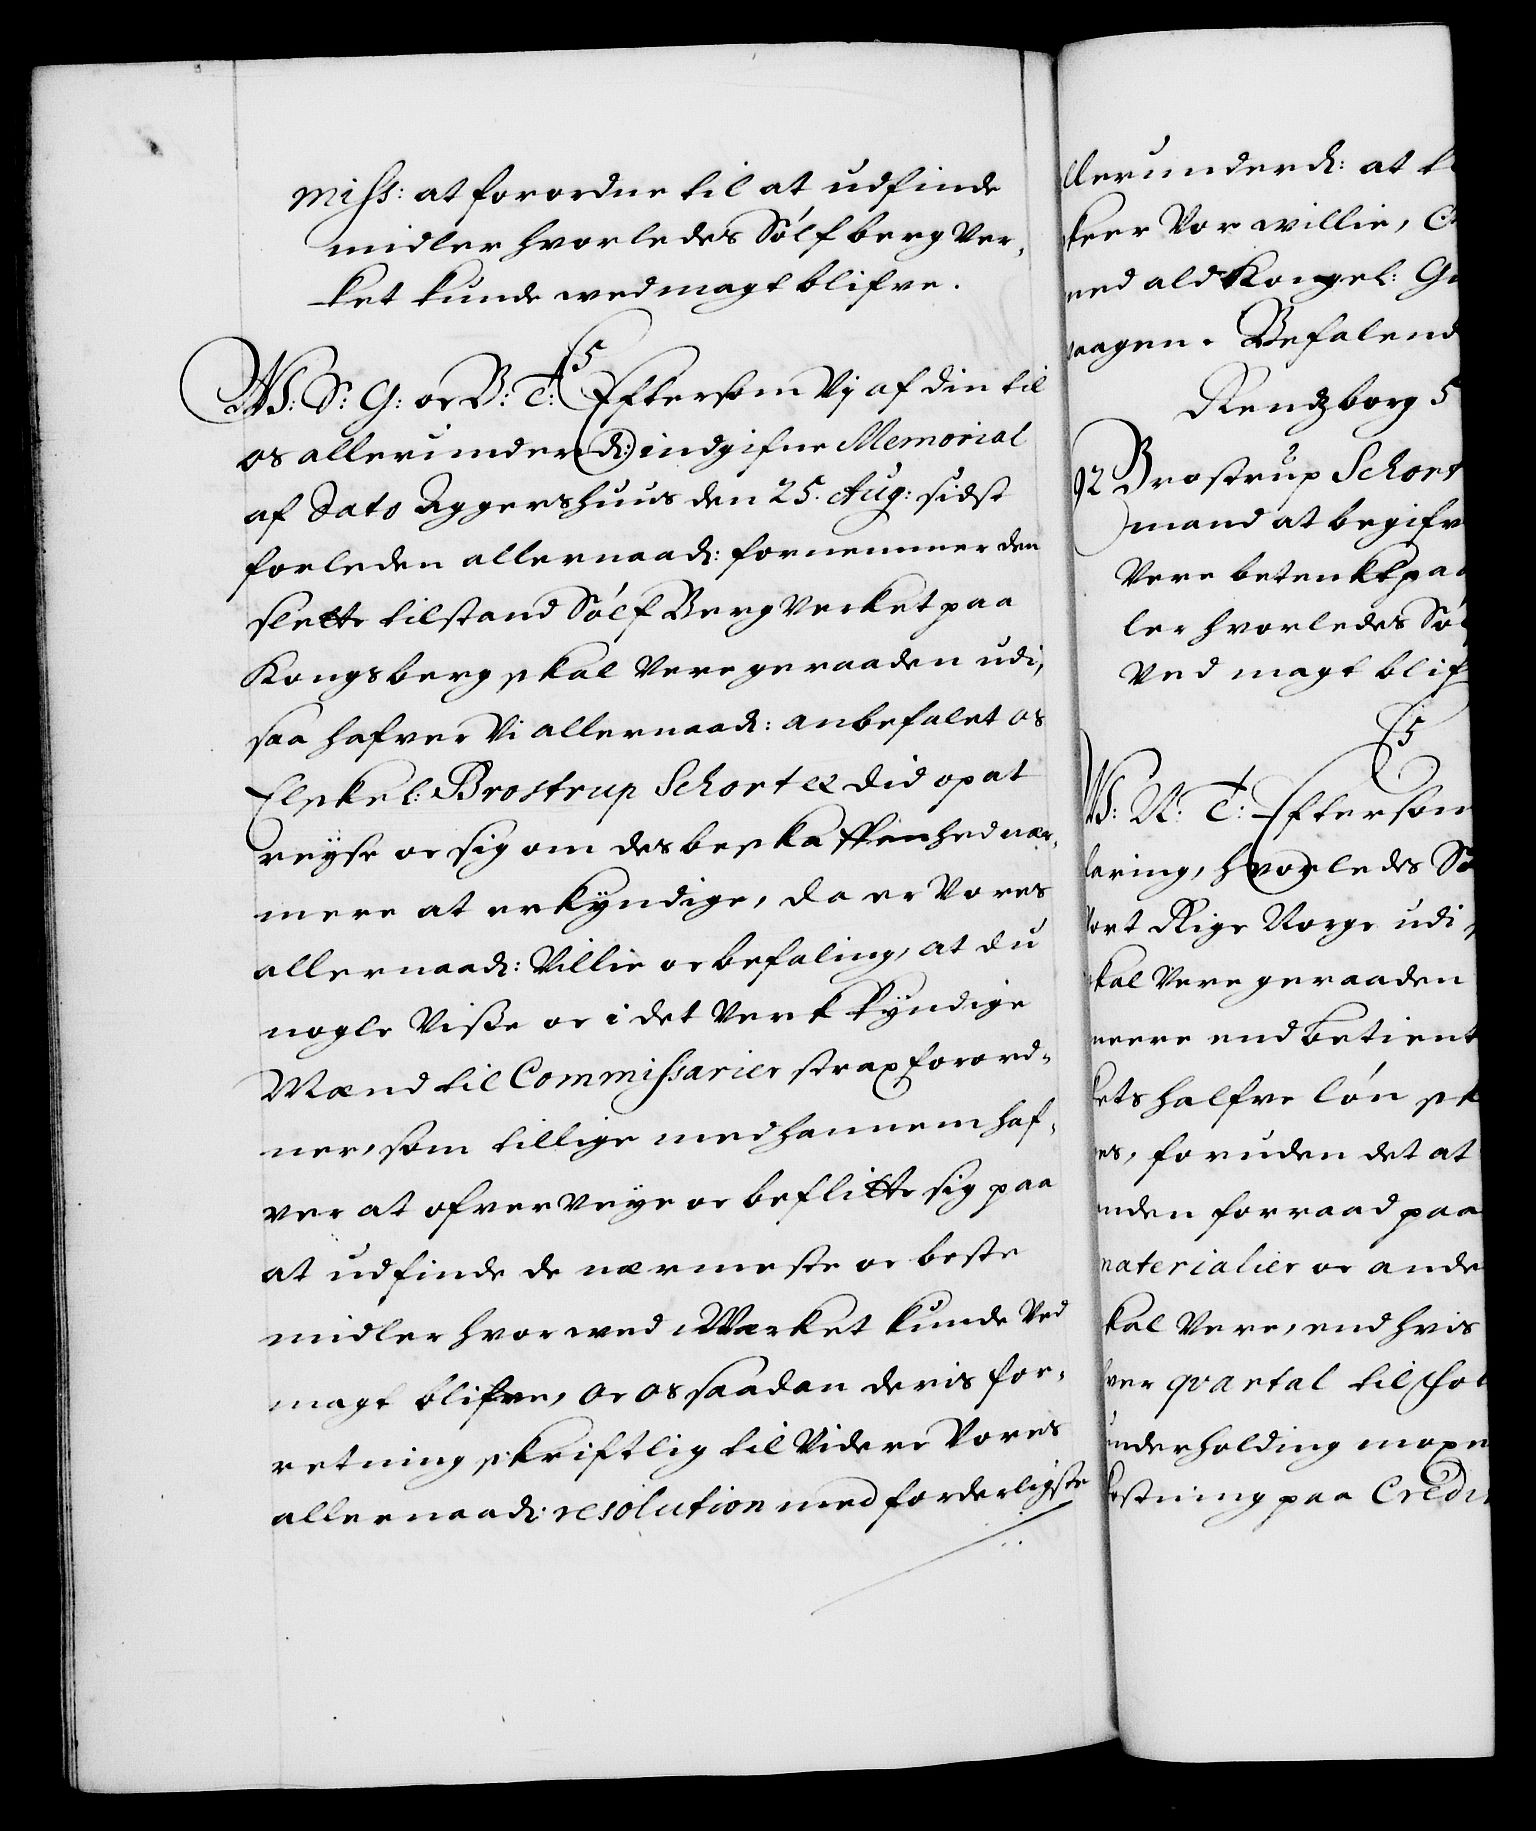 miss: at forordne til at udfinde
midler hvorledes Sølfberg Ver-
ket kunde ved magt blifve.
C5
W: S: G: oc B: T: Eftersom Vj af din til
os allerunderd: indgifne Memorial
af Dato Aggershuus den 25. Aug: sidst
forleden allernaad: fornemmer den
slette tilstand Sølf BergVerket paa
Kongsberg skal Vere geraaden udi,
saa hafver Vi allernaad: anbefalet os
Elskel: Brostrup Schort &c did op at
reyse oc sig om des beskaffenhed nær-
mere at erkyndige, da er Vores
allernaad: Villie oc befaling, at du
nogle Visse oc i det Verk kyndige
Mænd til Commissarier strax forord-
ner, som tillige med hannem haf-
ver at ofverveye oc beflitte sig paa
at udfinde de nærmeste oc beste
midler hvorved Werket kunde Ved
magt blifve, oc os saadan deris for-
retning skriftlig til Videre Vores
allernaad: resolution med forderligste
llerunderd: at
skeer Vor willie,
med ald Kongel:
vaagen. Befalend
Rendzborg 5
92 Brostrup Schort
mand at begifv
Vere betenkt paa
ler hvorledes Søl
Ved magt blif
C5
W: N: T: Eftersom
laring, hvorledes Sø
Vort Rige Norge udi
skal Vere geraaden
meere end betient
kets halfve løn sk
es, foruden det at
nden forraad paa
materialier oc ande
skal Vere, end hvis
hver qvartal til fol
underholding
kostning paa Credi